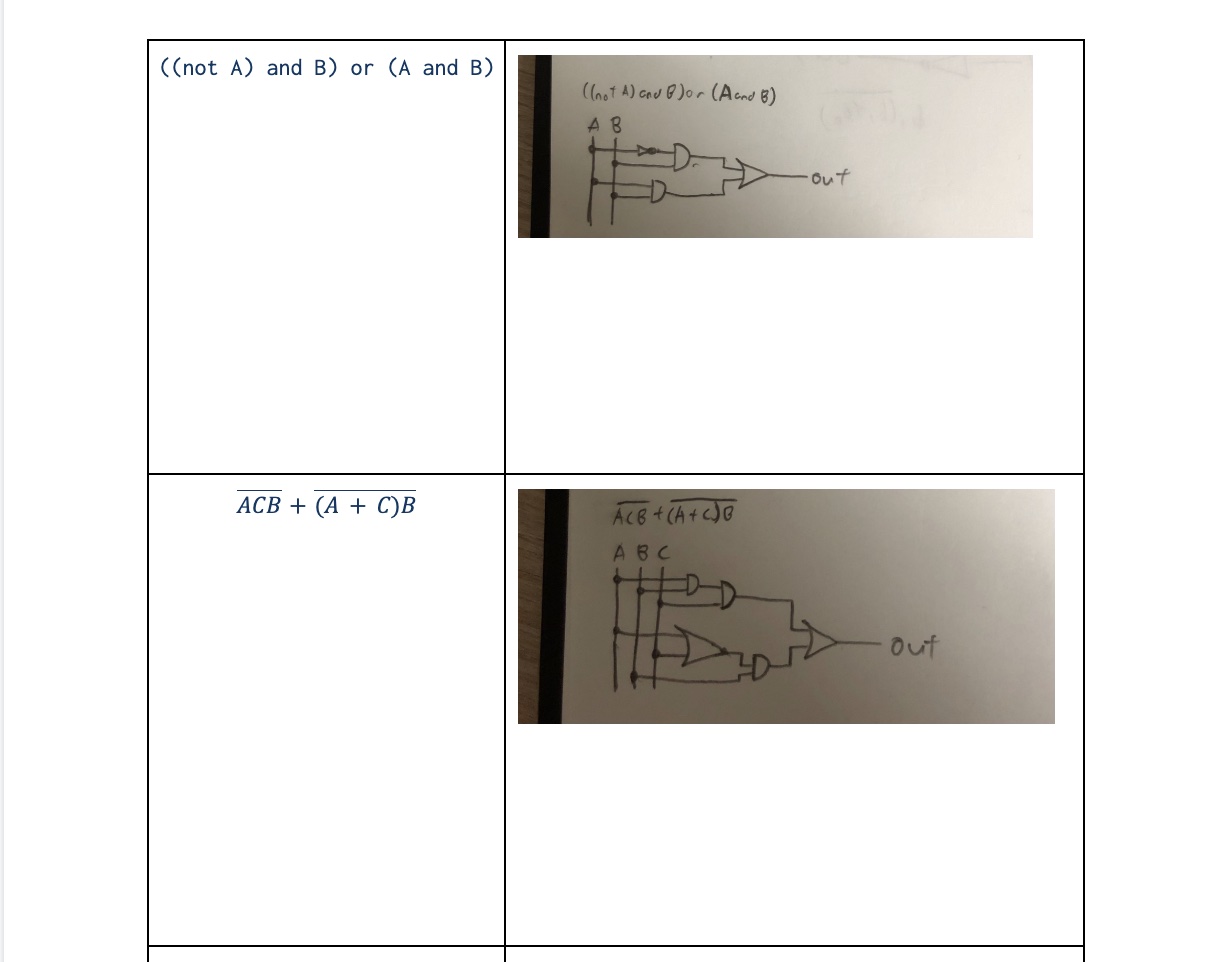 ((not A) and B) or (A and B)
((not A) and B) or (A and B)
A B
out
A̅C̅B̅ + (̅A̅ ̅+̅ ̅C̅)̅B̅
A̅C̅B̅ + (̅A̅+̅C̅)̅B̅
A B C
out